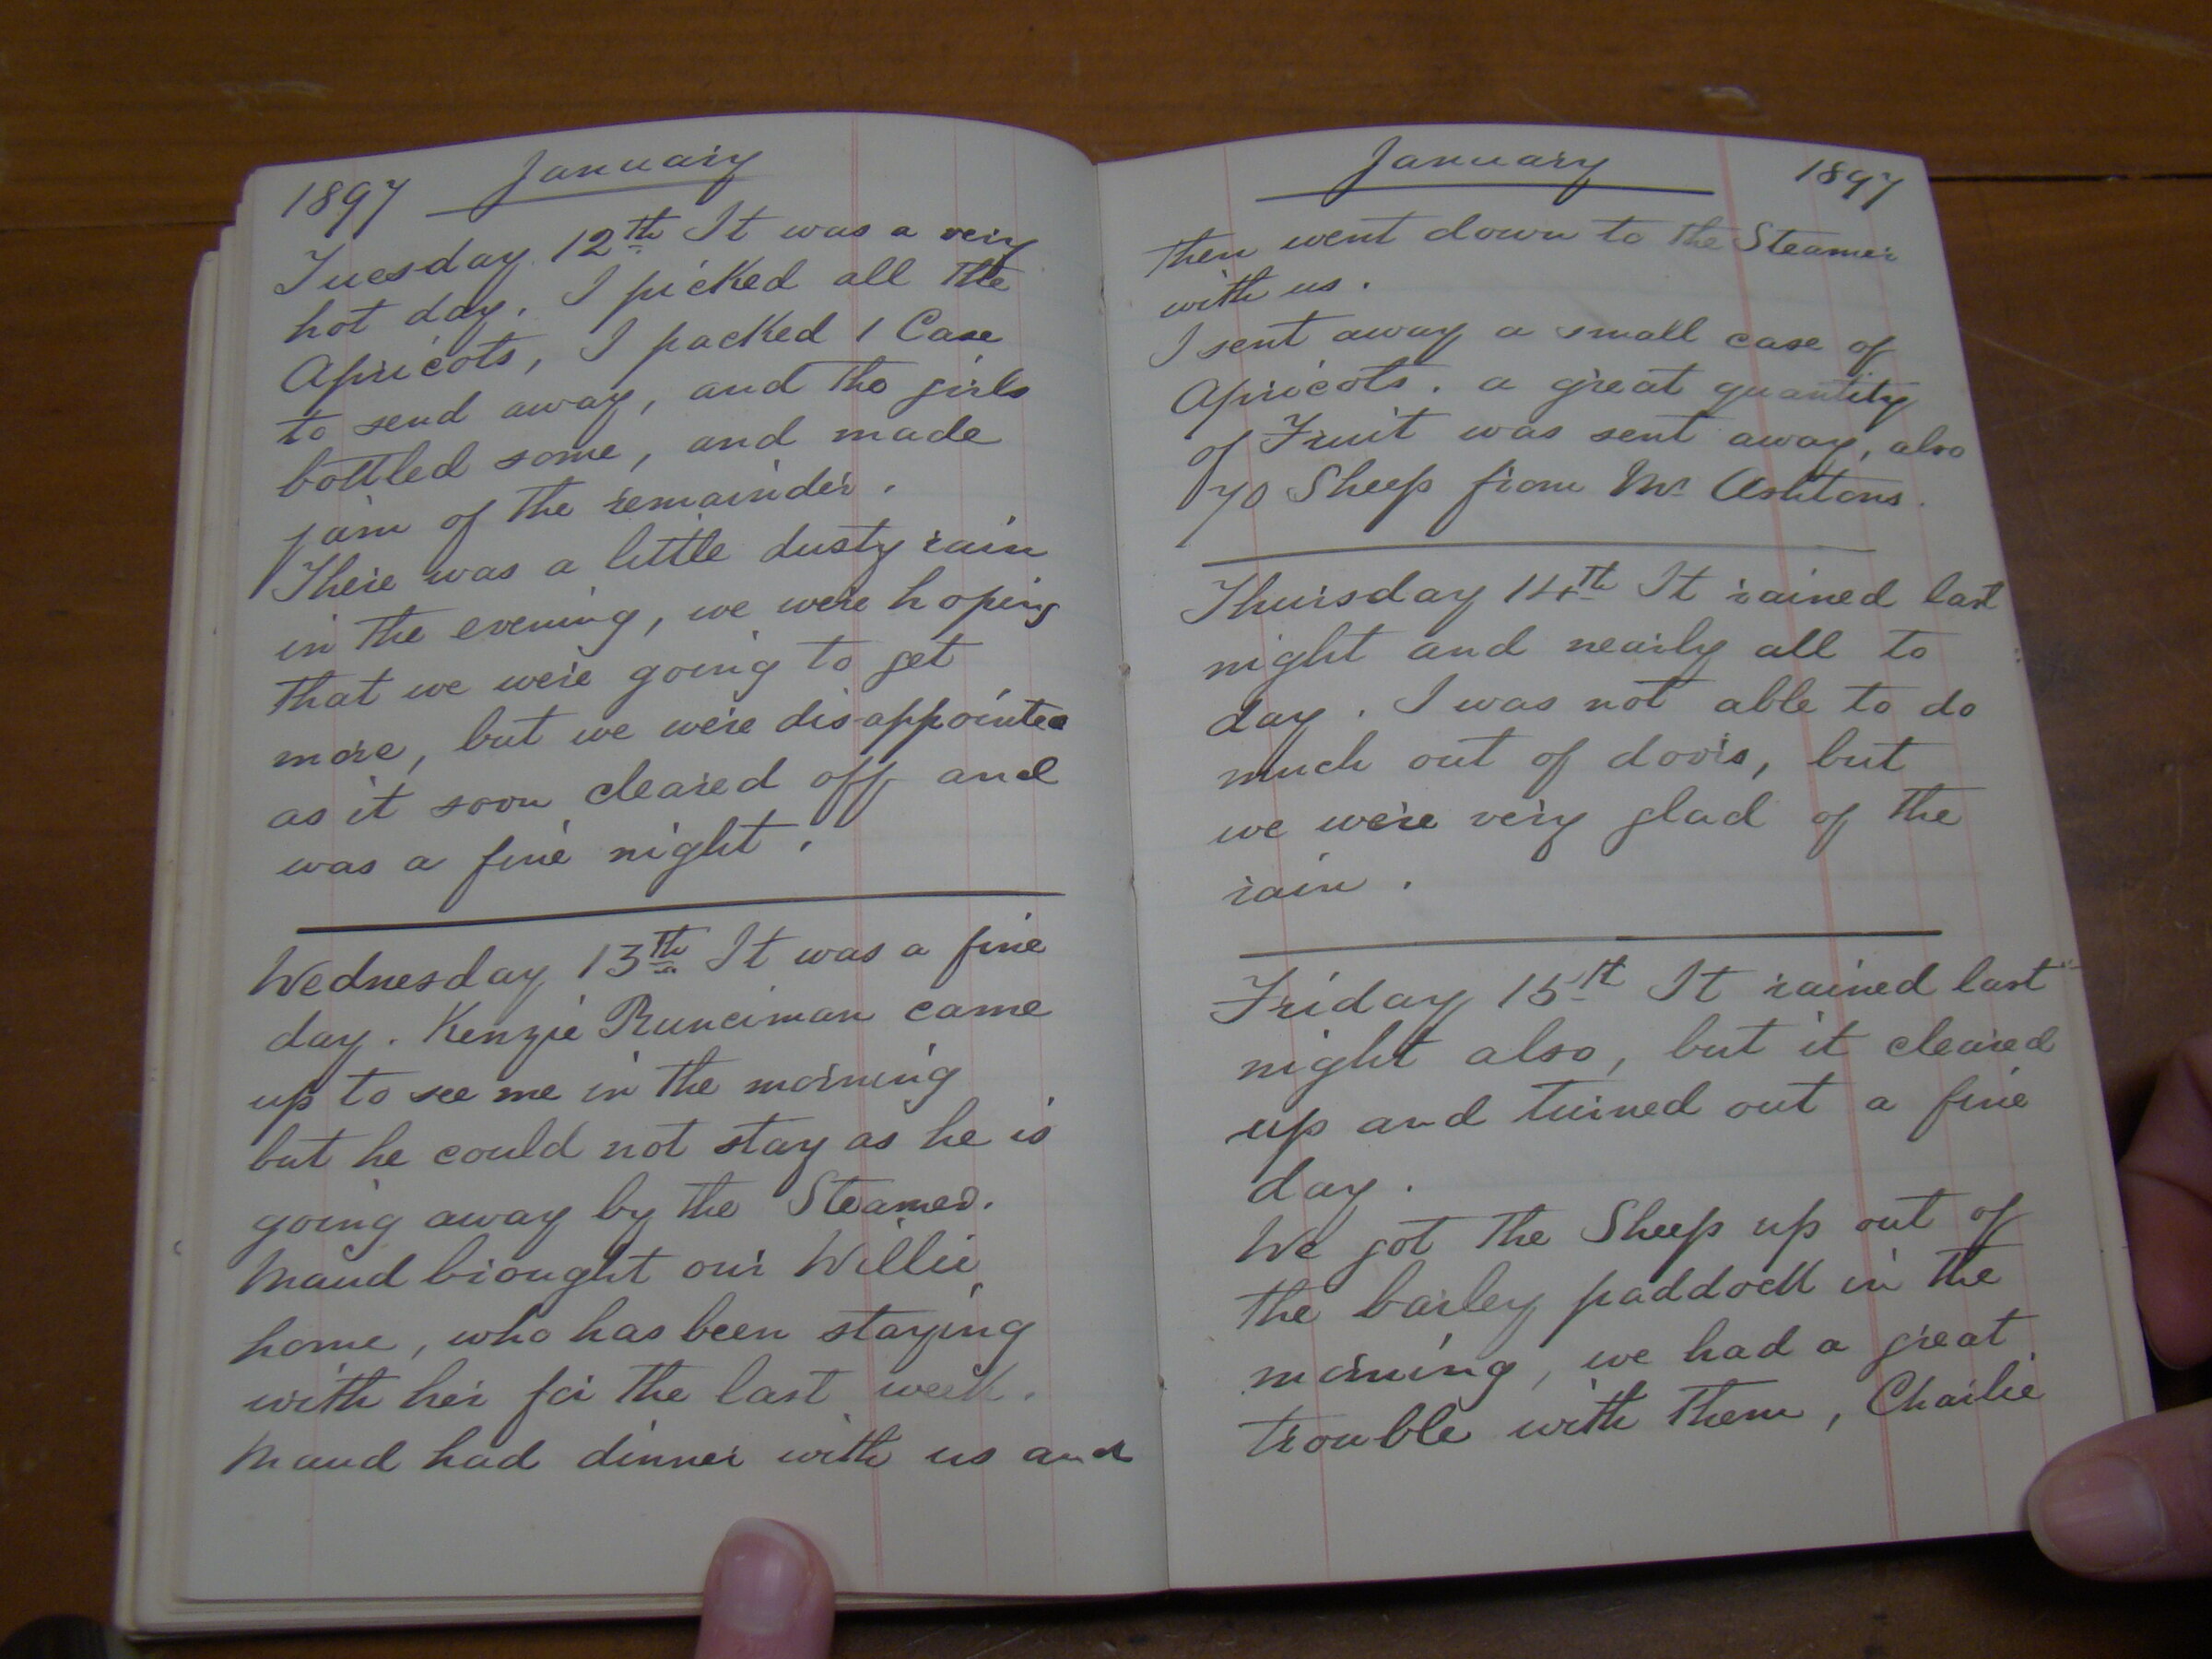 1897 January
Tuesday 12th It was a very
hot day. I picked all the
Apricots, I packed 1 Case
to send away, and the girls
bottled some, and made
jam of the remainder.
There was a little dusty rain
in the evening, we were hoping
that we were going to get
more, but we were disappointed
as it soon cleared off and
was a fine night.
Wednesday 13th It was a fine
day. Kenzie Runciman came
up to see me in the morning
but he could not stay as he is
going away by the Steamer.
Maud brought our Willie
home, who has been staying
with her for the last week.
Maud had dinner with us and
January 1897
then went down to the Steamer
with us.
I sent away a small case of
Apricots. a great quantity
of Fruit was sent away, also
70 Sheep from Mr Ashtons.
Thursday 14th It rained last
night and nearly all to
day. I was not able to do
much out of doors, but
we were very glad of the
rain.
Friday 15th It rained last
night also, but it cleared
up and turned out a fine
day.
We got the Sheep up out of
the barley paddock in the
morning, we had a great
trouble with them, Charlie